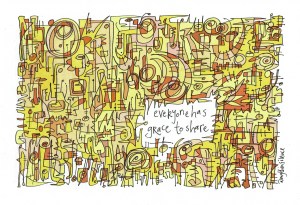 everyone has
grace to share